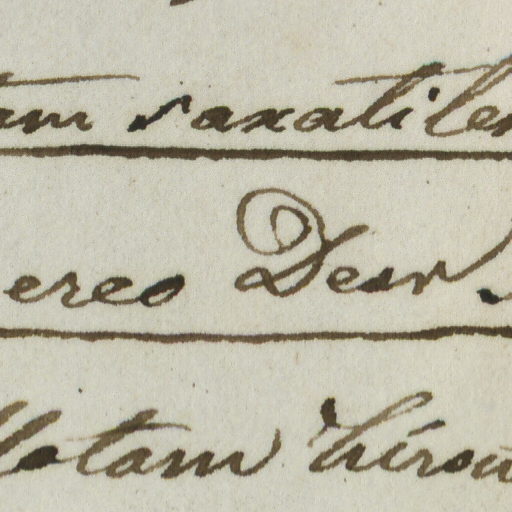 tam saxatilem
ereo Desv
lotam hirsu